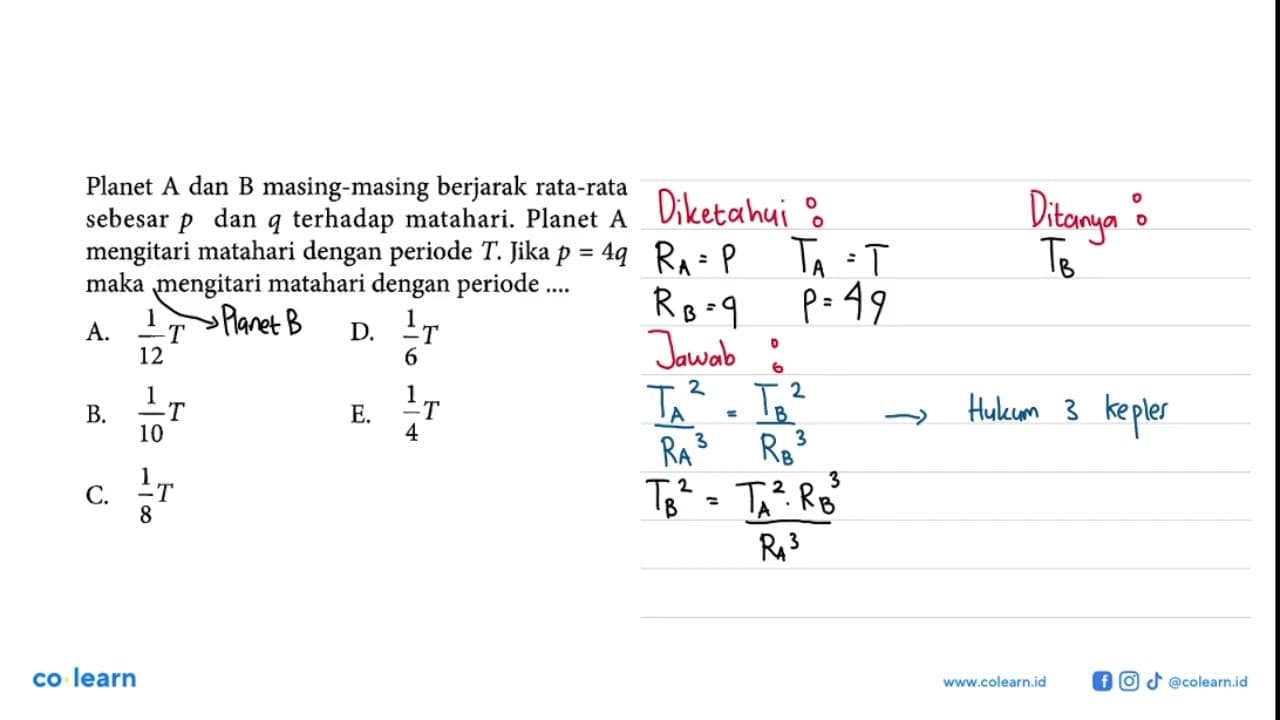 Planet A dan B masing-masing berjarak rata-rata
sebesar p dan q terhadap matahari. Planet A
mengitari matahari dengan periode T. Jika p = 4q
maka mengitari matahari dengan periode ....
Planet B
A. 1/12 T
B. 1/10 T
C. 1/8 T
D. 1/6 T
E. 1/4 T
Diketahui :
R_A = P T_A = T
R_B = q P = 4q
Ditanya :
T_B
Jawab :
T_A²/R_A³ = T_B²/R_B³ → Hukum 3 kepler
T_B² = T_A² . R_B³ / R_A³
co learn
www.colearn.id
@colearn.id